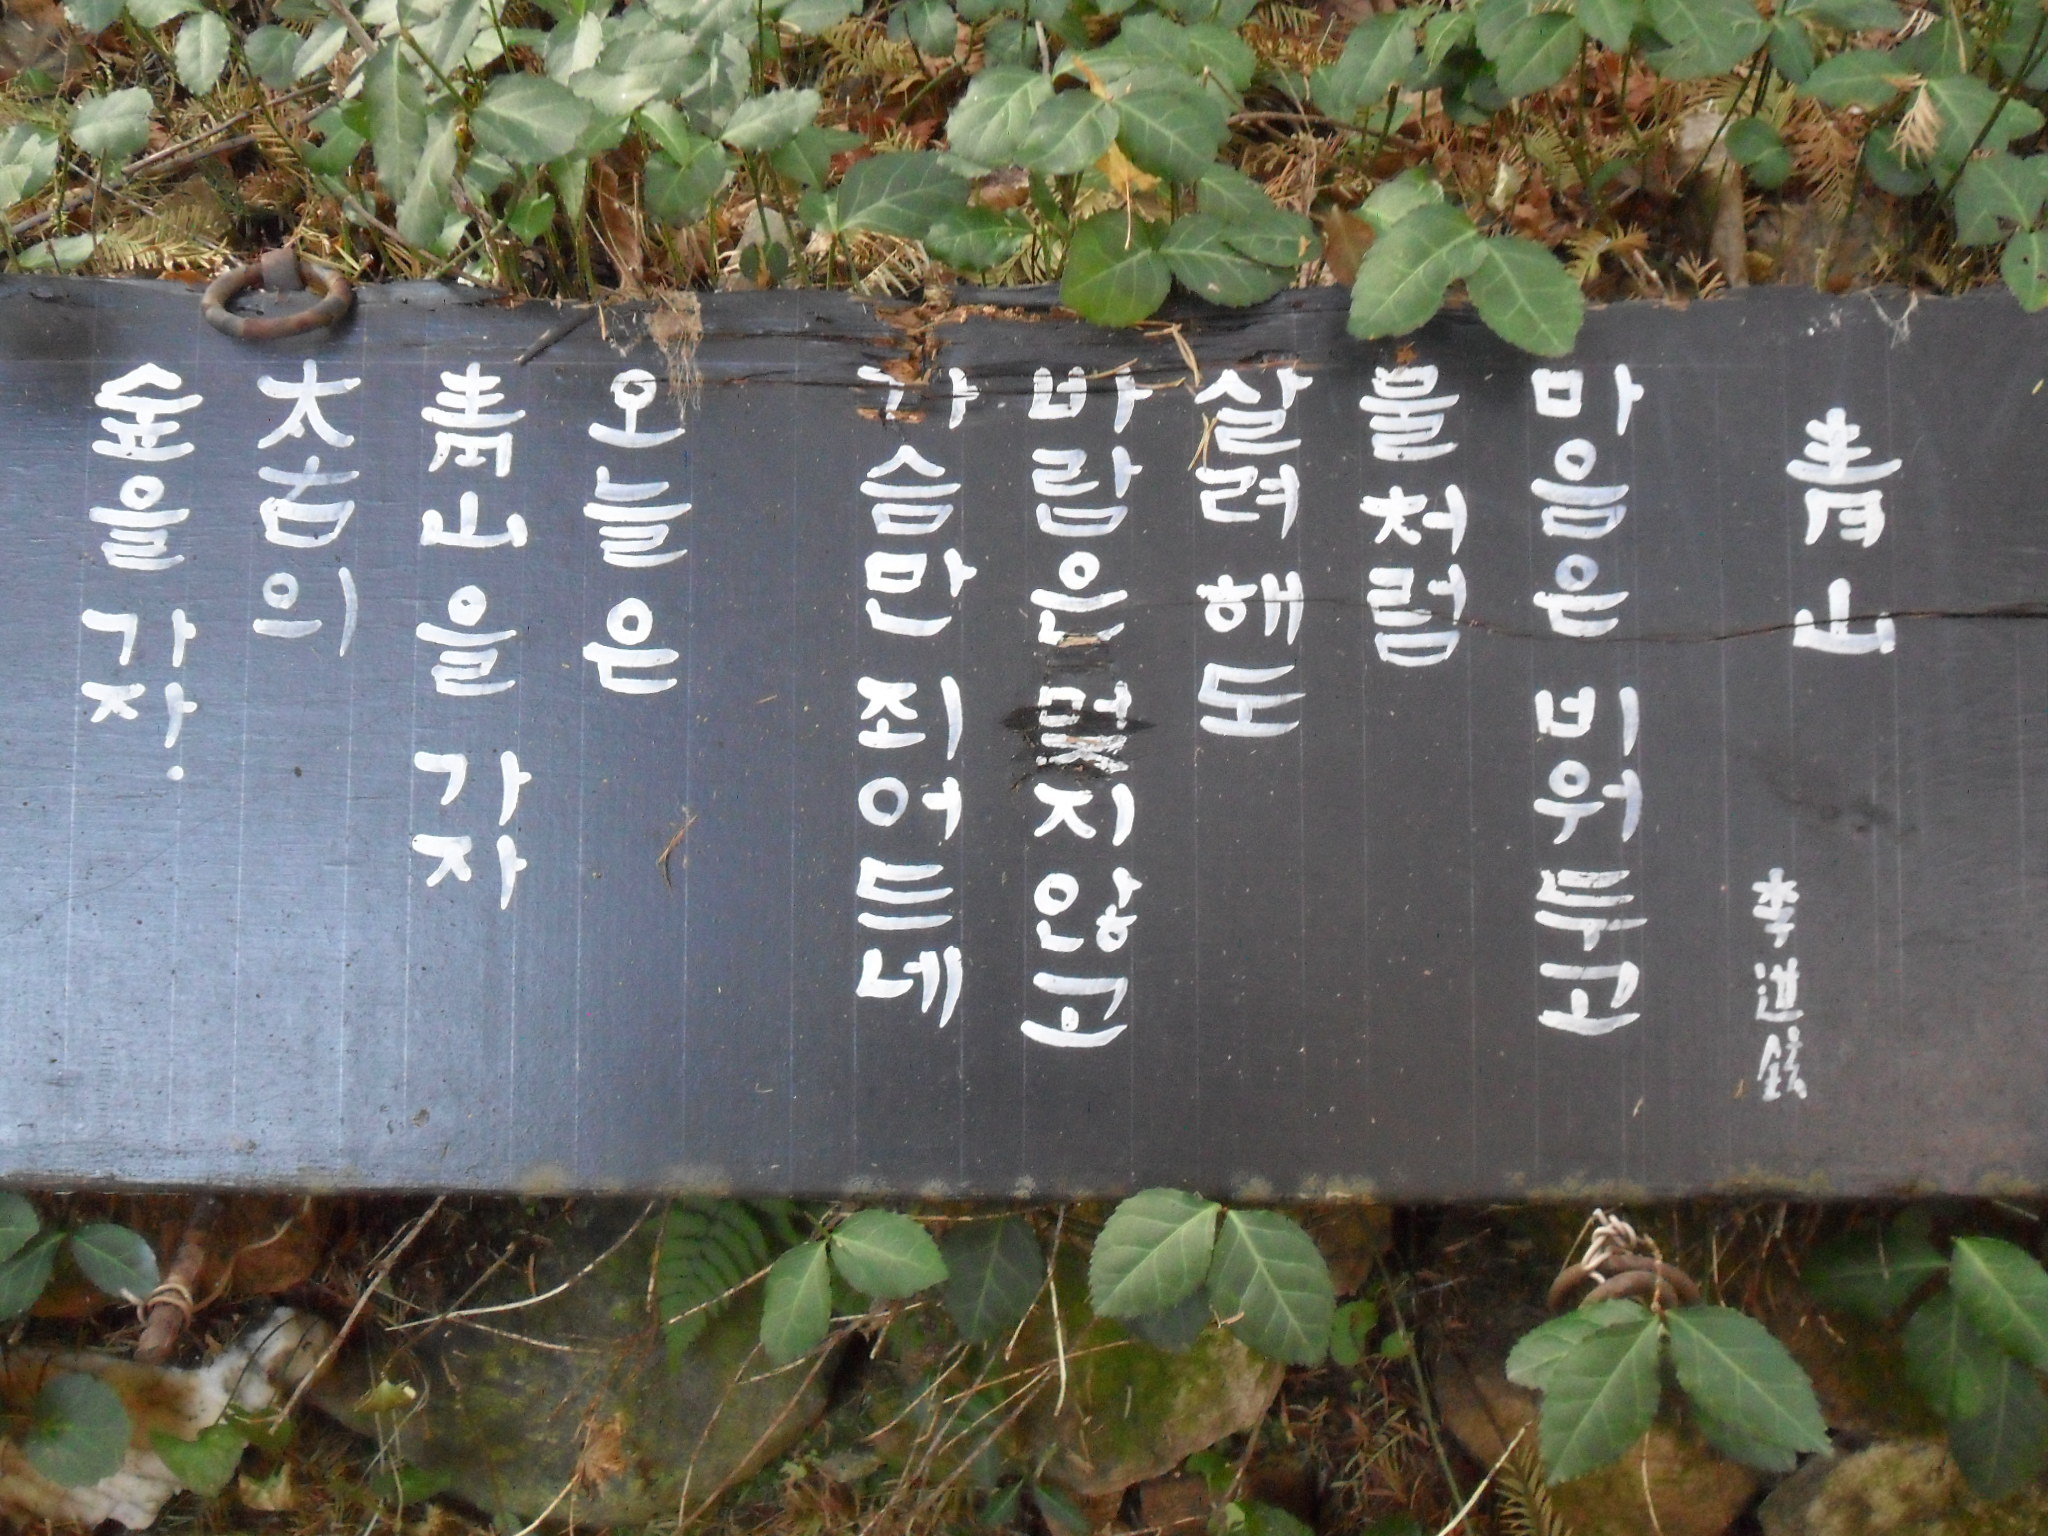 靑山
李進鉉
마음은 비워두고
물처럼
살려 해도
바람은 멎지 않고
가슴만 죄어드네
오늘은
靑山을 가자
太古의
숲을 가자.